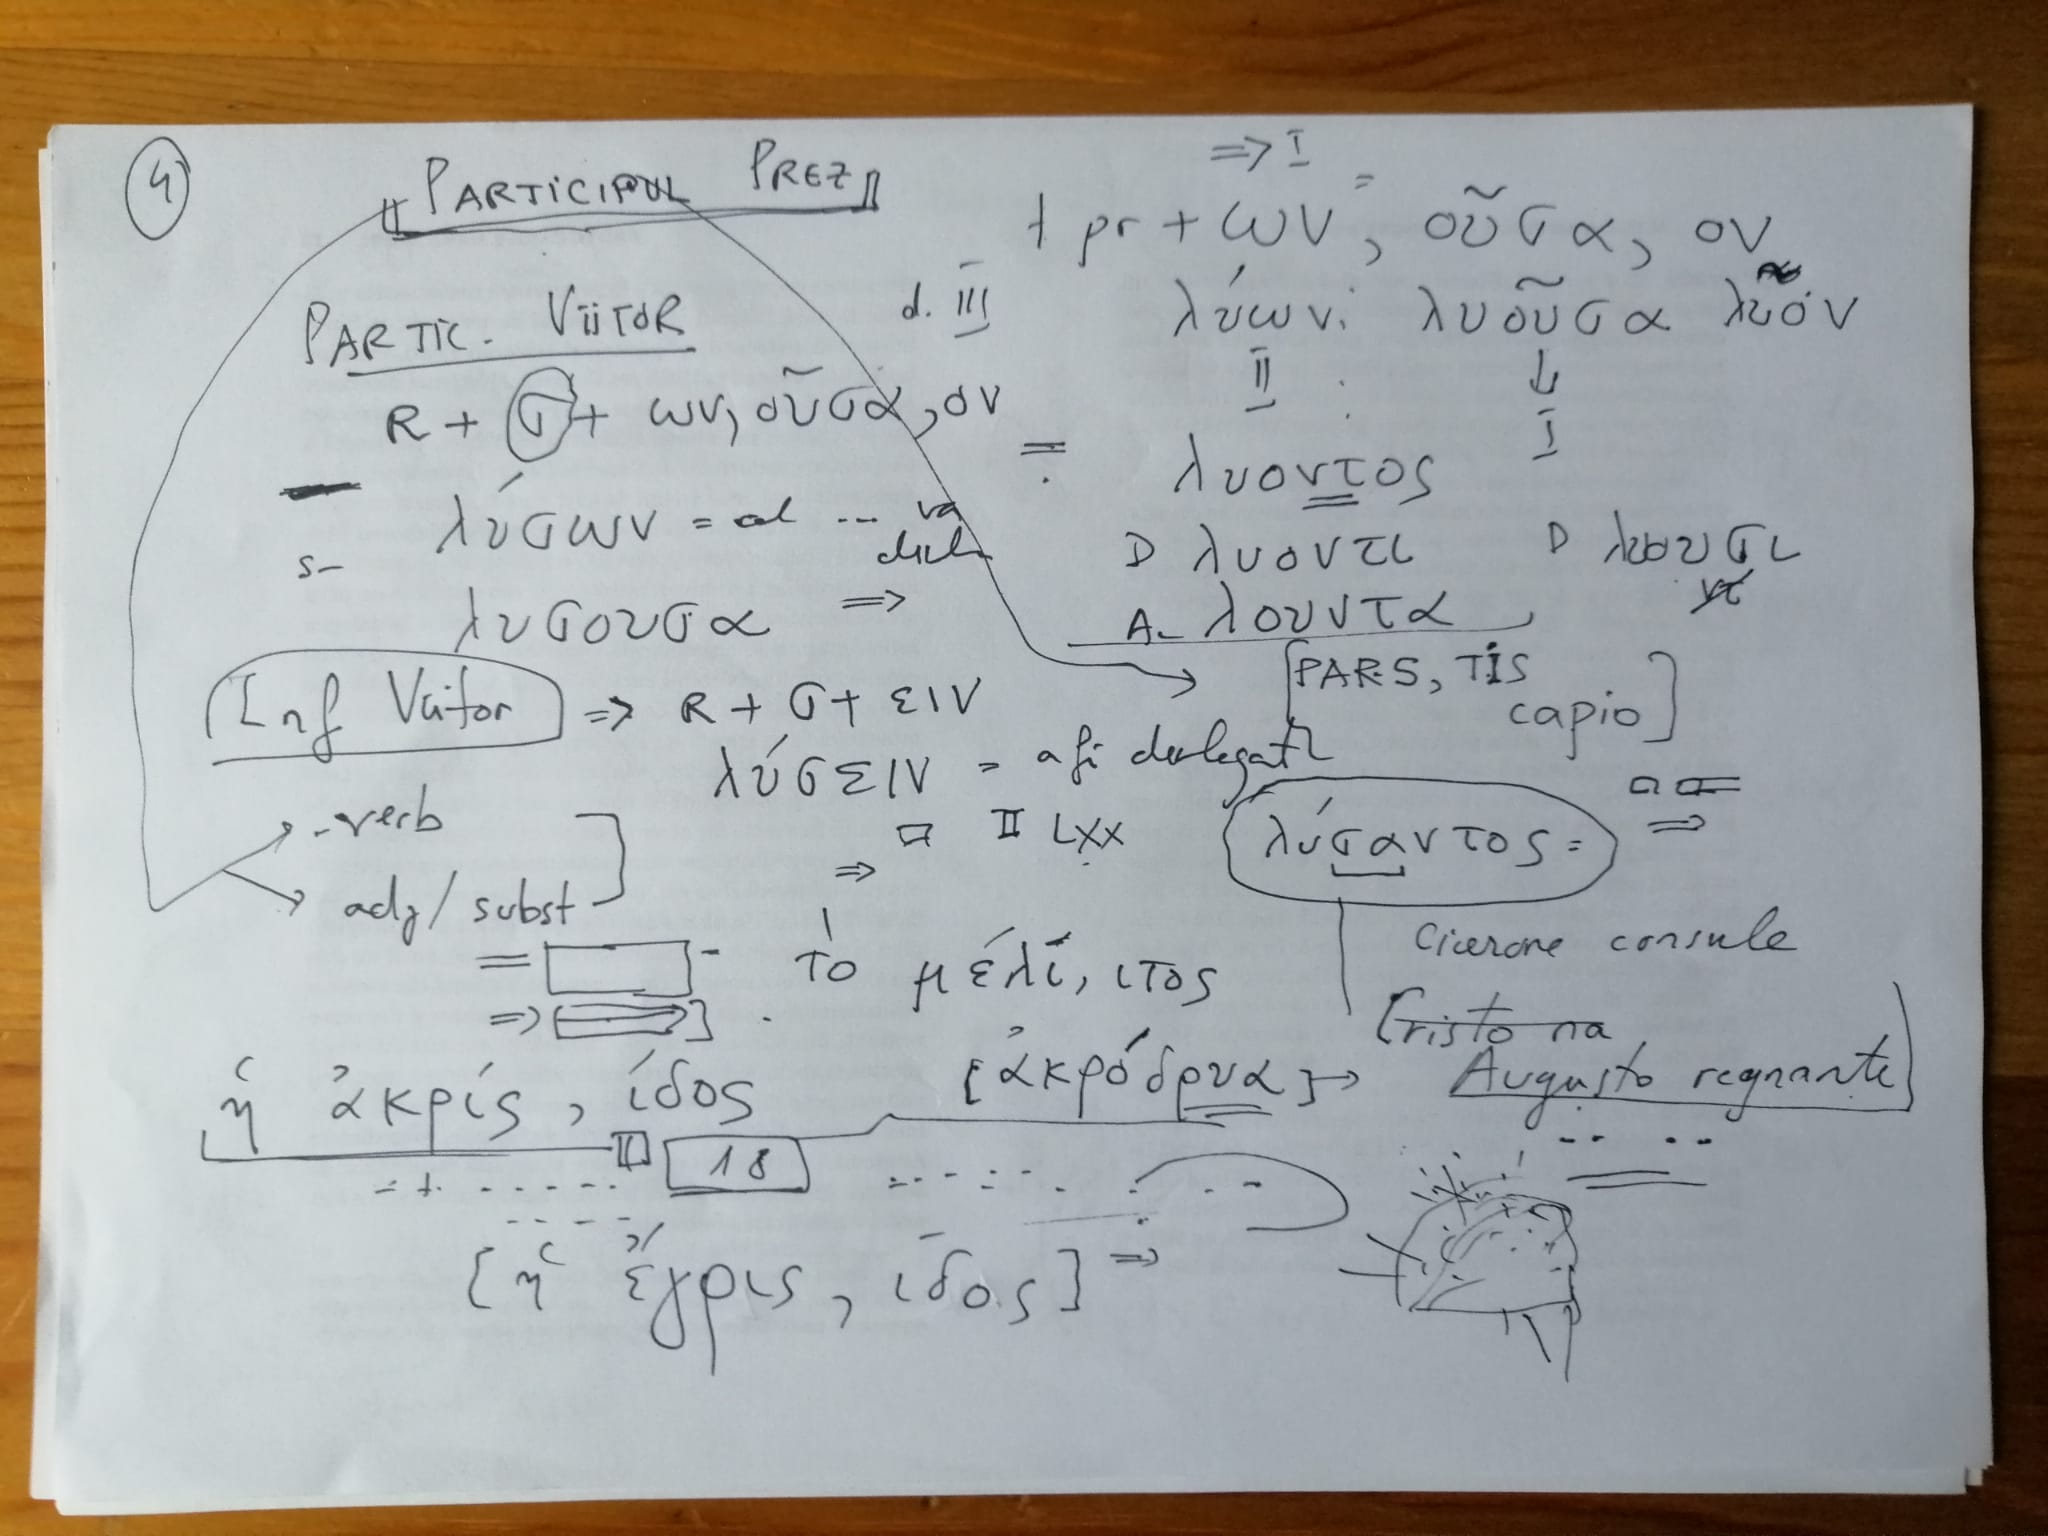 4
PARTICIPUL PREZ
⇒ I
t pr + ων, οῦσα, ον
d. III
λύων, λυοῦσα λυόν
II
I
PARTIC. VIITOR
R + σ + ων, οῦσα, ον
= λυοντος
λύσων = al ... va
s-
D λυοντι D λυουσι
ντ
λυσουσα ⇒
A- λουντα
[PARS, TIS
capio]
Inf Viitor ⇒ R + σ + ειν
λύσειν = a fi dezlegat
- verb
adj / subst
⇒ II LXX
λύσαντος = ⇒
Cicerone consule
Cristo na
Augusto regnante
= - τὸ μέλι, ιτος
⇒
ἡ ἀκρίς, ίδος
[ἀκρόδρυα] →
II 18
[ἡ ἔγρις, ιδος] ⇒